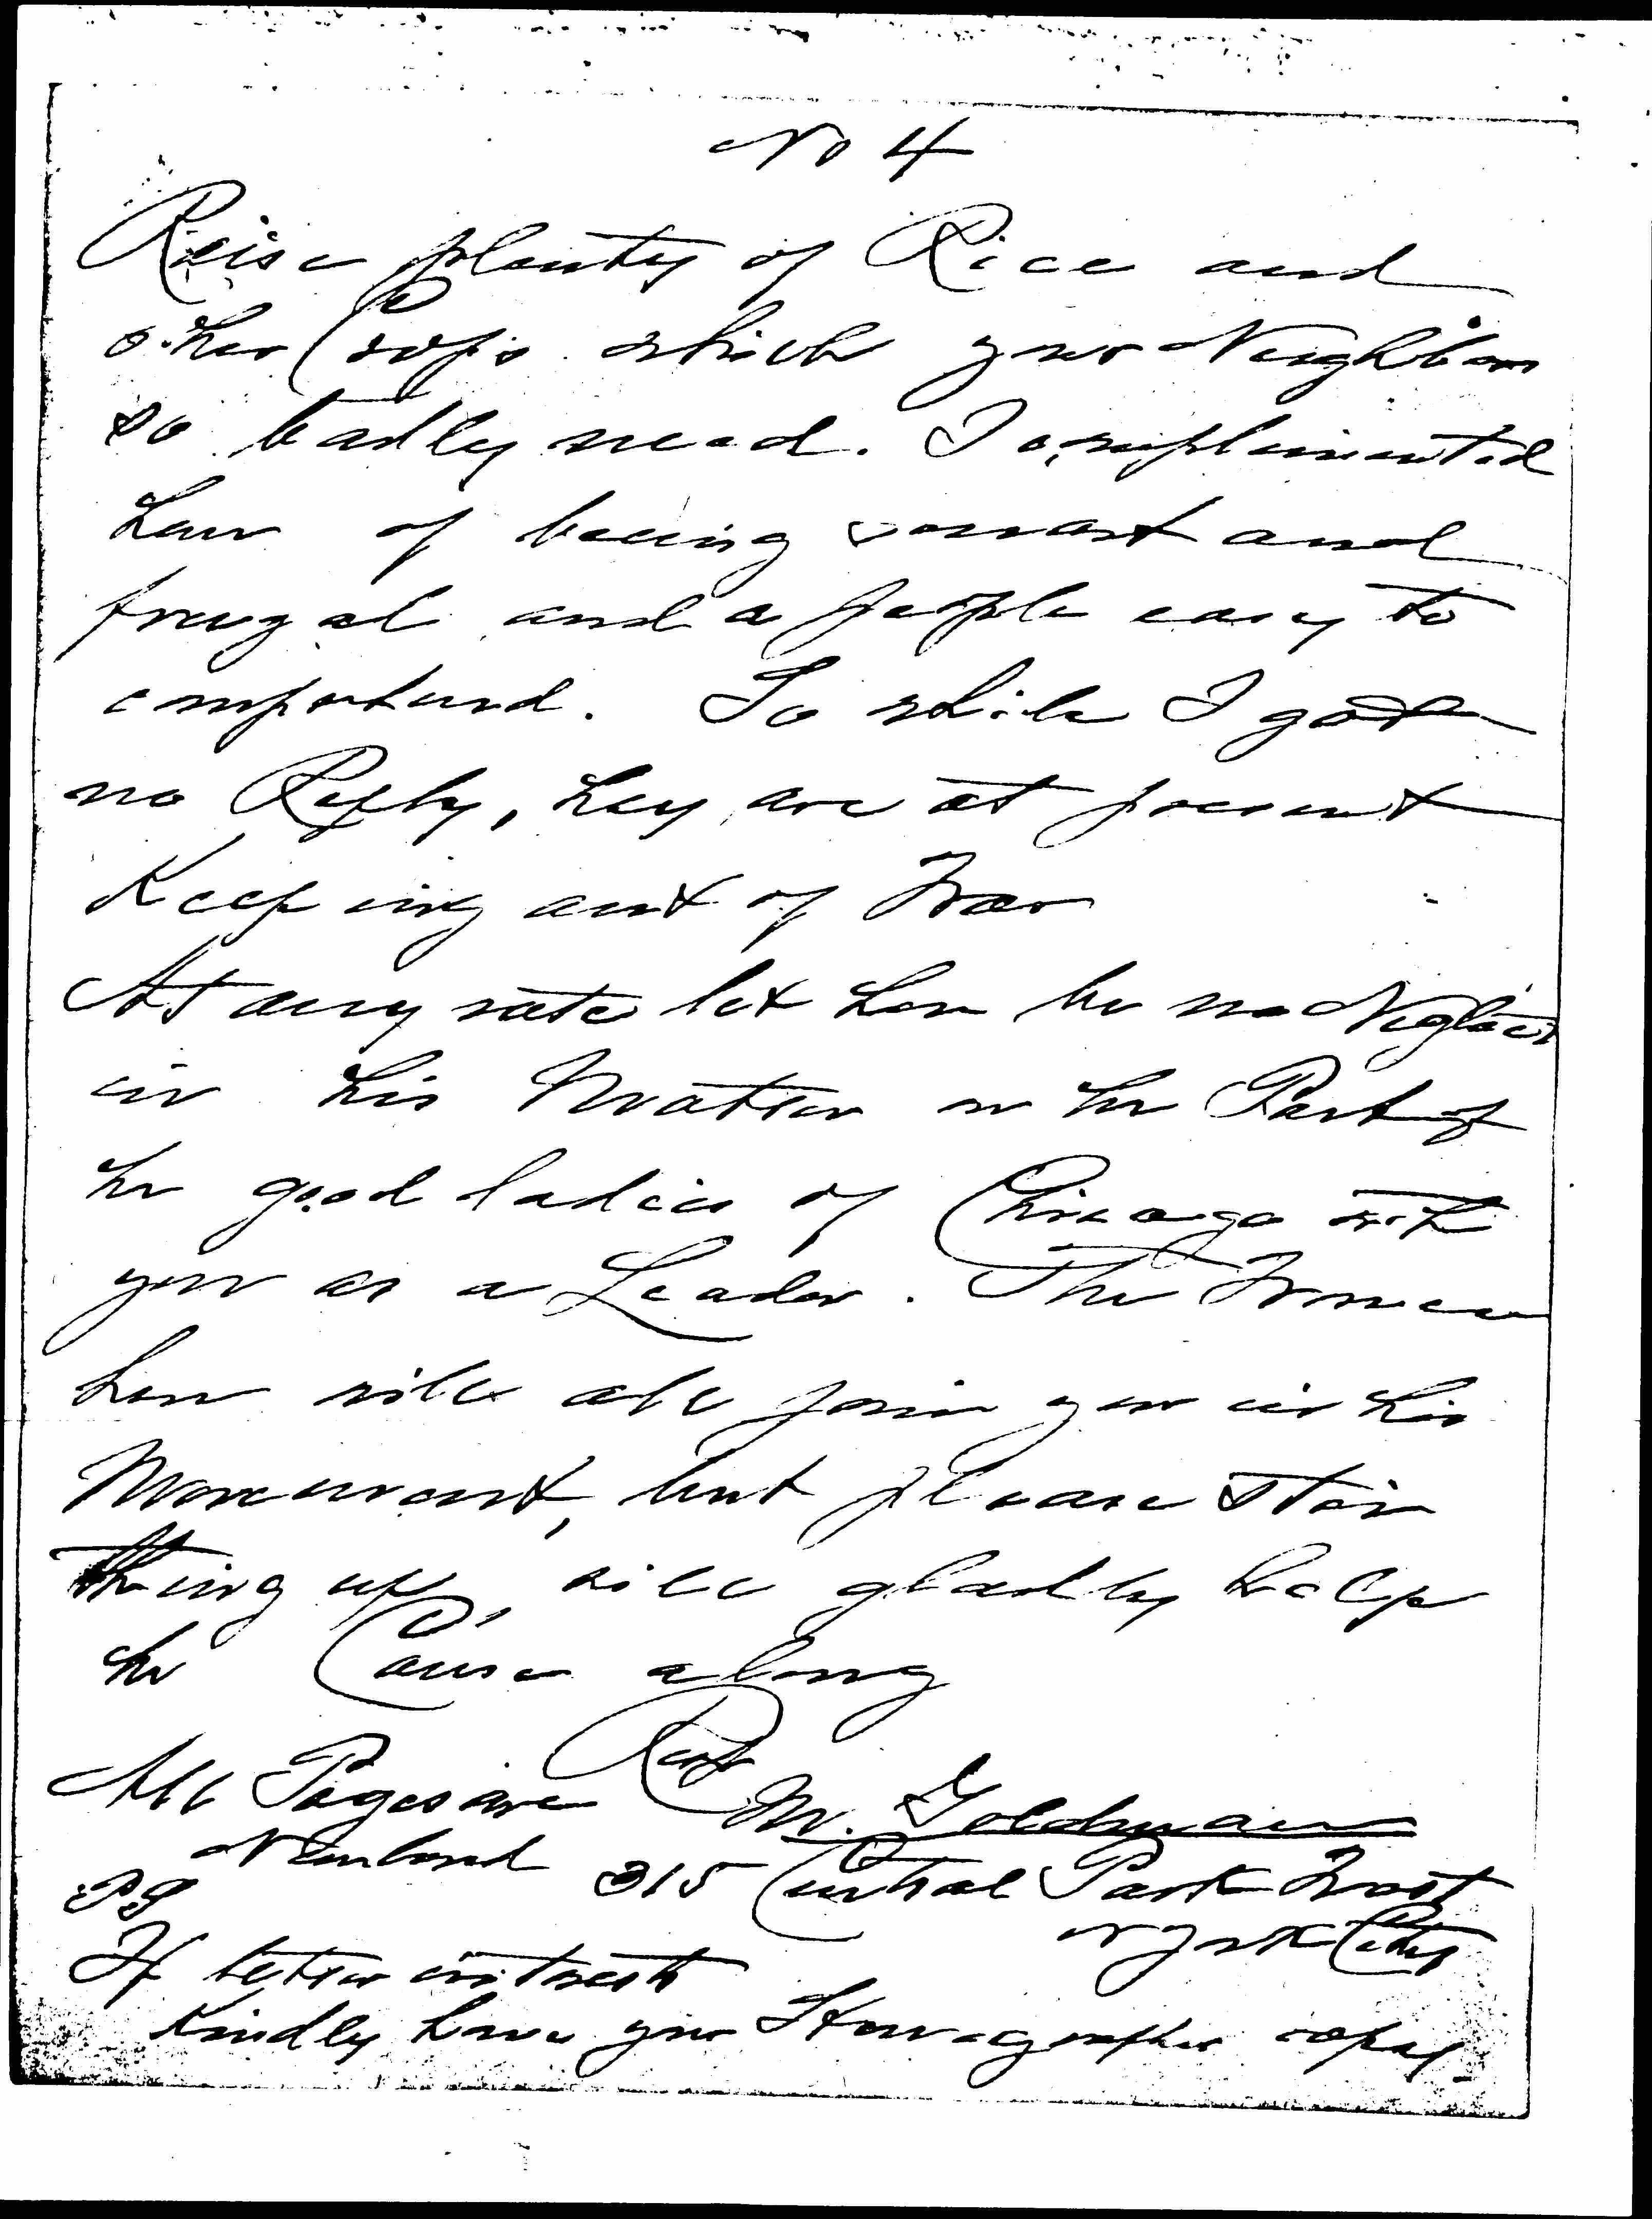 No 4
Raise plenty of Rice and
other Crops which your Neighbors
so badly need. I complimented
them of being smart and
frugal and a people easy to
comprehend. So while I got
no Reply, they are at present
Keeping out of War
At any rate let there be no Neglect
in this Matter on the Part of
the good ladies of Chicago with
you as a Leader. The Women
here will all join you in this
Movement, but please stir
thing up, will gladly help
the Cause along
Resp
All Pages are M. Goldman
Numbered 315 Central Park West
N York City
PS
If letter interests
Kindly have your Stenographer copy